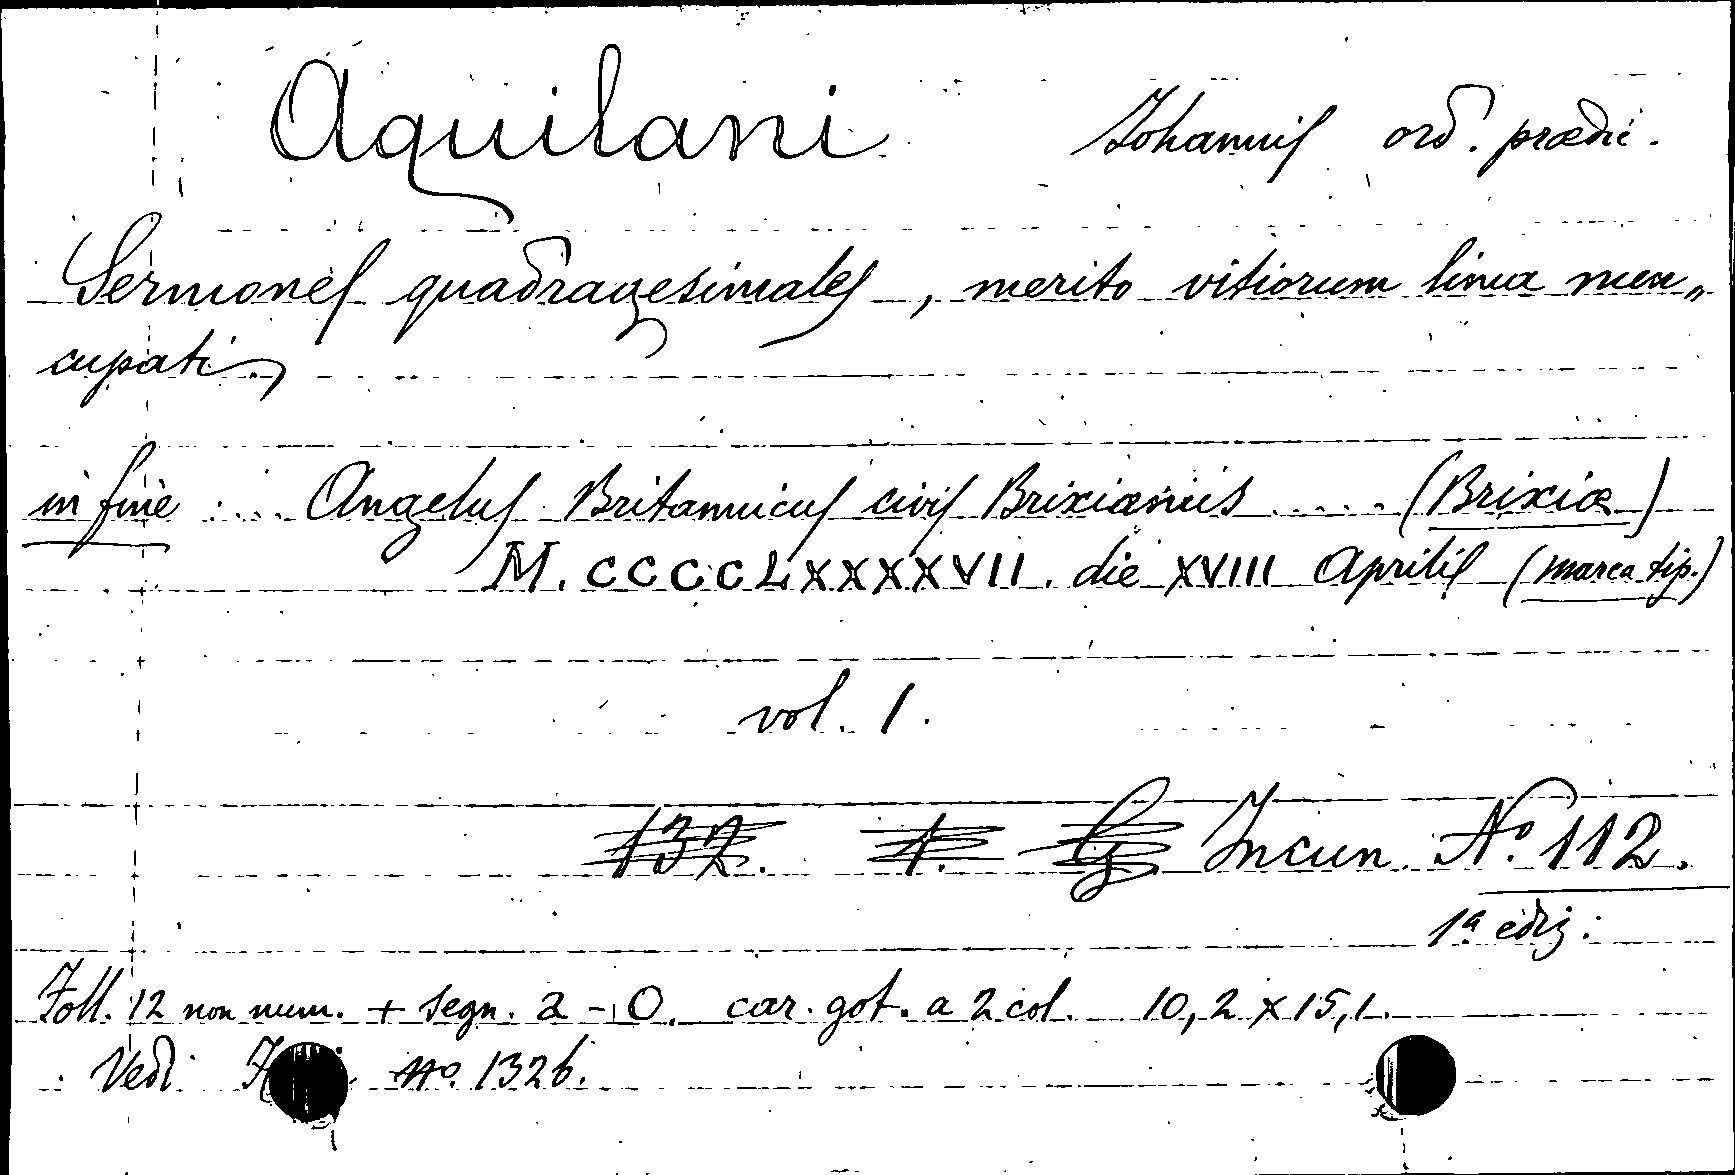 Aquilani Johannis ord. prædic.
Sermones quadragesimales, merito vitiorum lima nun„
cupati.
in fine : ... Angelus Britannicus civis Brixianus .... (Brixiæ)
M.CCCCLXXXXVII. die XVIII Aprilis (marca tip.)
vol. 1.
137. 1. Incun. Nº. 112.
1ª ediz:
Foll. 12 non num. + segn. a - O. car. got. a 2 col. 10,2 x 15,1.
Vedi Nº. 1326.